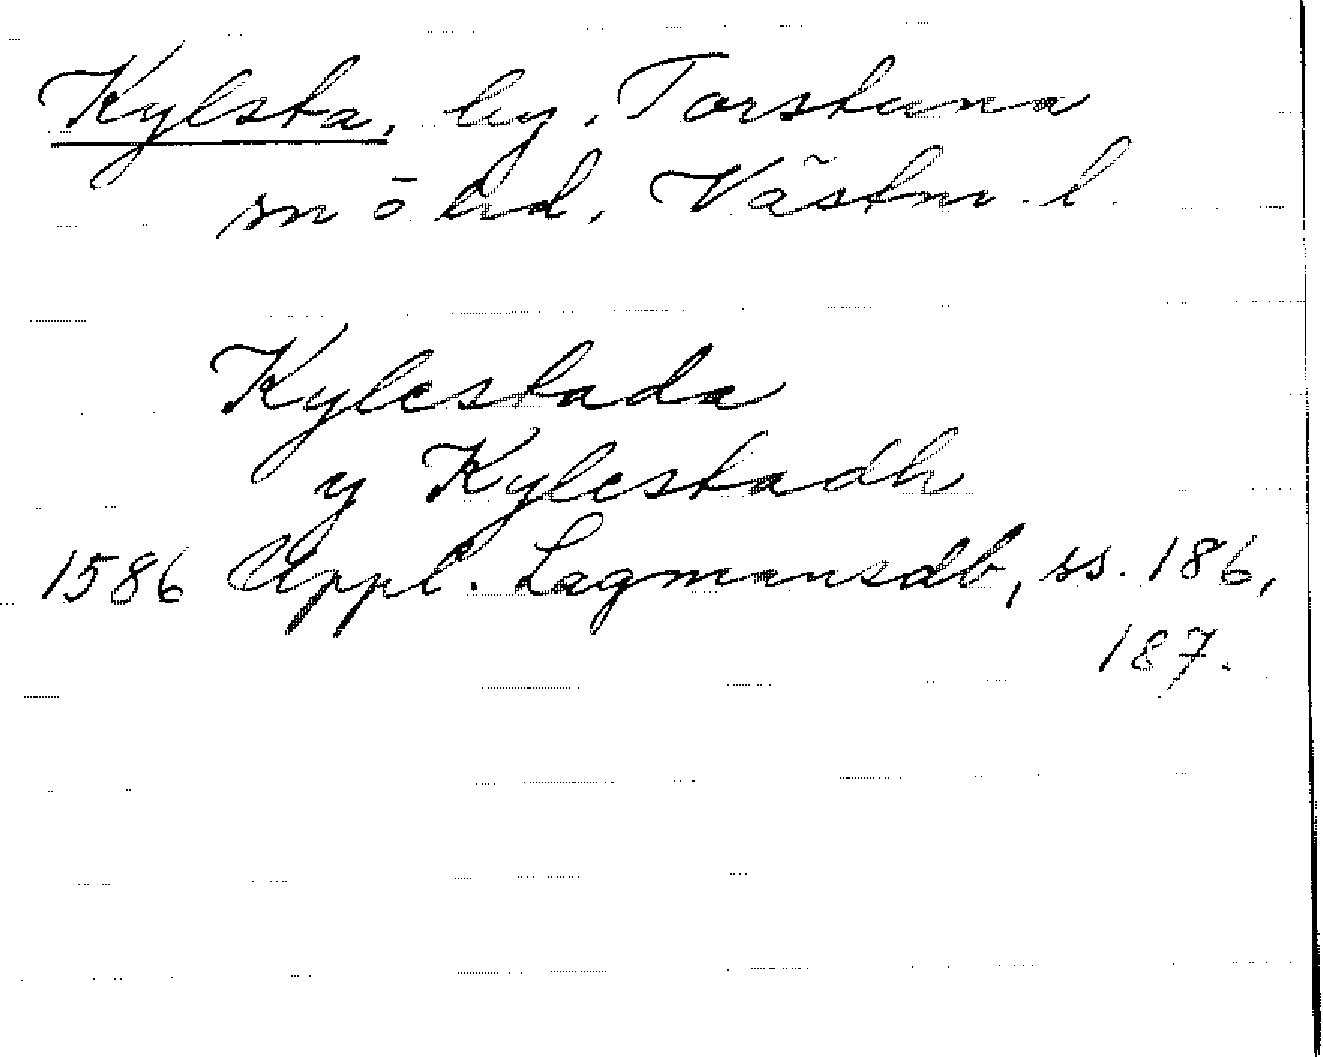 Kylsta, by, Torstuna
sn ō hd, Västm. l.
Kylestada
y Kylestadh
1586 Uppl. Lagmansdb, ss. 186,
187.